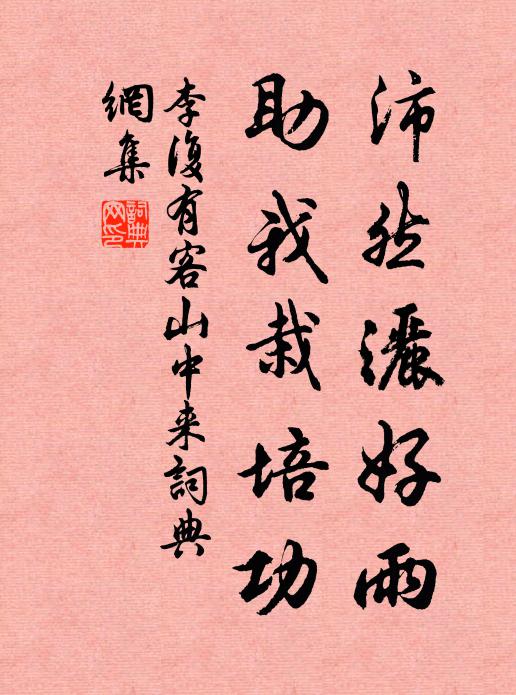 沛然灑好雨
助我栽培功
李復有客山中来詞典
網集
詞典網印